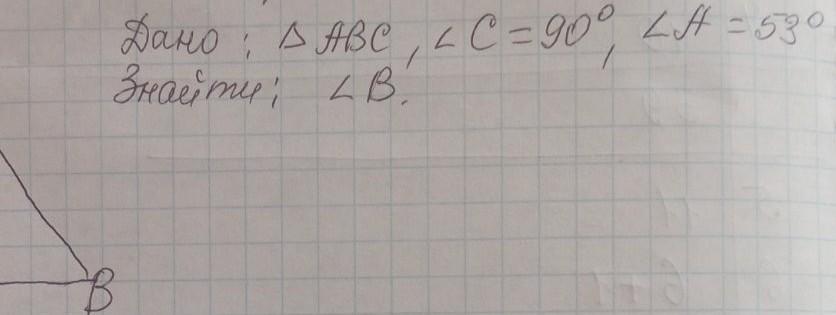 Дано: △ ABC, ∠C = 90°, ∠A = 53°
Знайти: ∠B.
B